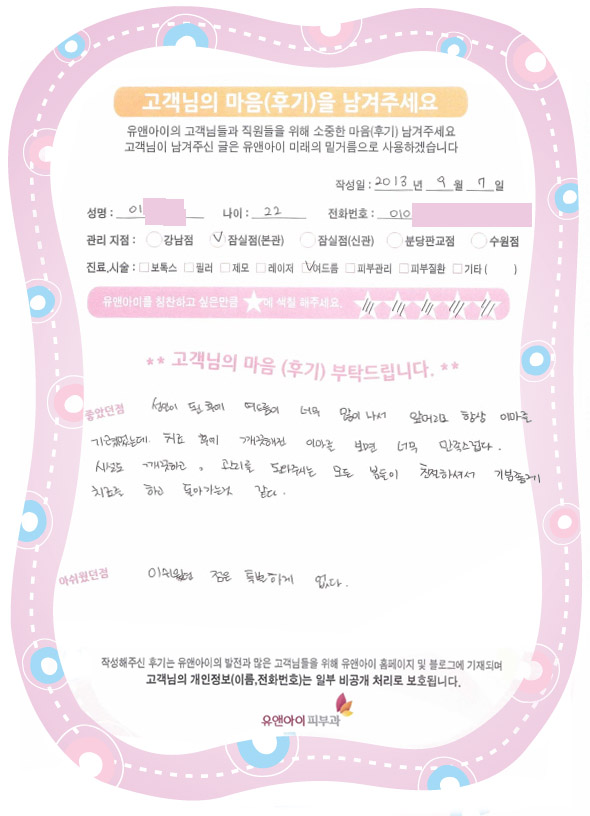 고객님의 마음(후기)을 남겨주세요
유앤아이의 고객님들과 직원들을 위해 소중한 마음(후기) 남겨주세요
고객님이 남겨주신 글은 유앤아이 미래의 밑거름으로 사용하겠습니다
작성일 : 2013 년 9 월 7 일
성명 : 이 나이 : 22 전화번호 : 010
관리 지점 : 강남점 잠실점(본관) 잠실점(신관) 분당판교점 수원점
진료,시술 : 보톡스 필러 제모 레이저 여드름 피부관리 피부질환 기타 ( )
유앤아이를 칭찬하고 싶은만큼 ★에 색칠 해주세요.
** 고객님의 마음 (후기) 부탁드립니다. **
좋았던점 성인이 된 후에 여드름이 너무 많이 나서 앞머리로 항상 이마를
치료 후에 깨끗해진 이마를 보면 너무 만족스럽다.
시설도 깨끗하고, 관리를 도와주시는 모든 분들이 친절하셔서 기분좋게
치료를 하고 돌아가는것 같다.
아쉬웠던점 아쉬웠던 점은 특별하게 없다.
작성해주신 후기는 유앤아이의 발전과 많은 고객님들을 위해 유앤아이 홈페이지 및 블로그에 기재되며
고객님의 개인정보(이름,전화번호)는 일부 비공개 처리로 보호됩니다.
유앤아이 피부과